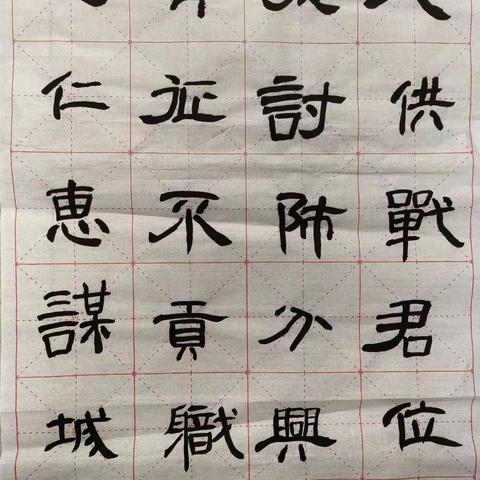 供戰君位
討師分興
征不貢職
仁恵謀城